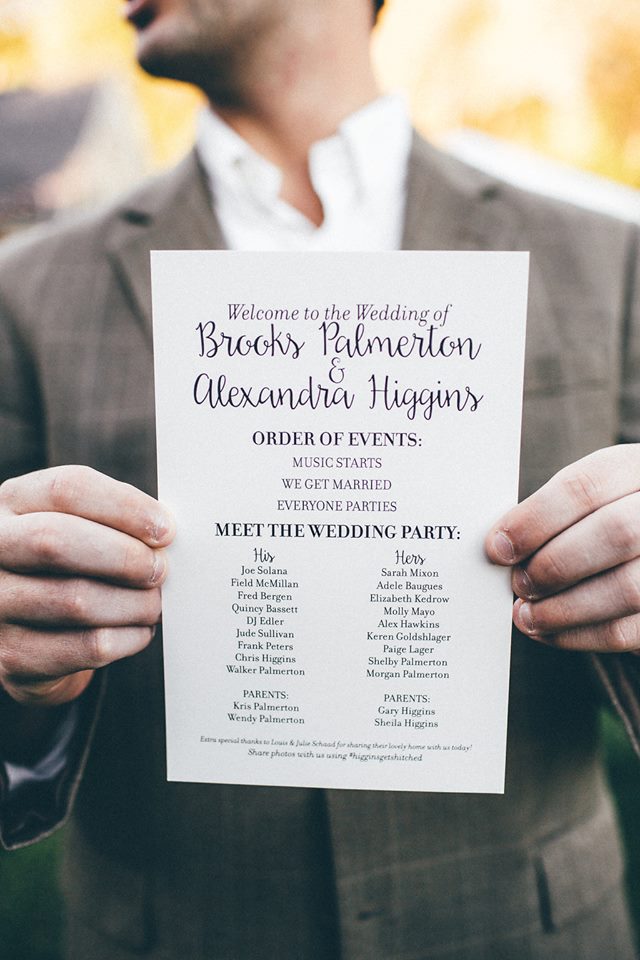 Welcome to the Wedding of
Brooks Palmerton
&
Alexandra Higgins
ORDER OF EVENTS:
MUSIC STARTS
WE GET MARRIED
EVERYONE PARTIES
MEET THE WEDDING PARTY:
His
Joe Solana
Field McMillan
Fred Bergen
Quincy Bassett
DJ Edler
Jude Sullivan
Frank Peters
Chris Higgins
Walker Palmerton
PARENTS:
Kris Palmerton
Wendy Palmerton
Hers
Sarah Mixon
Adele Baugues
Elizabeth Kedrow
Molly Mayo
Alex Hawkins
Keren Goldshlager
Paige Lager
Shelby Palmerton
Morgan Palmerton
PARENTS:
Gary Higgins
Sheila Higgins
Extra special thanks to Louis & Julie Schaad for sharing their lovely home with us today!
Share photos with us using #higginsgetshitched